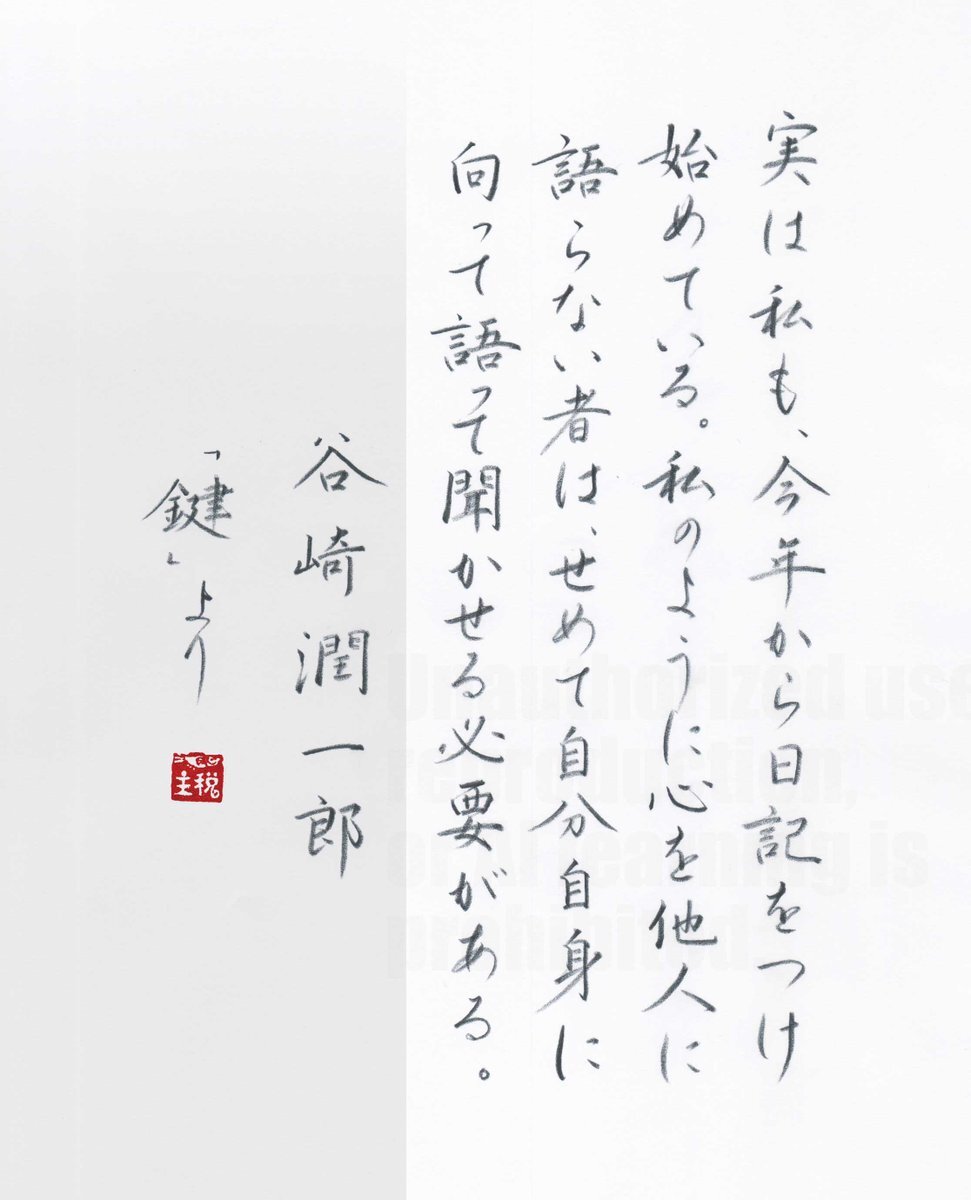 実は私も、今年から日記をつけ
始めている。私のように心を他人に
語らない者は、せめて自分自身に
向って語って聞かせる必要がある。
谷崎潤一郎
「鍵」より
主税
Unauthorized use
reproduction,
or AI learning is
prohibited.